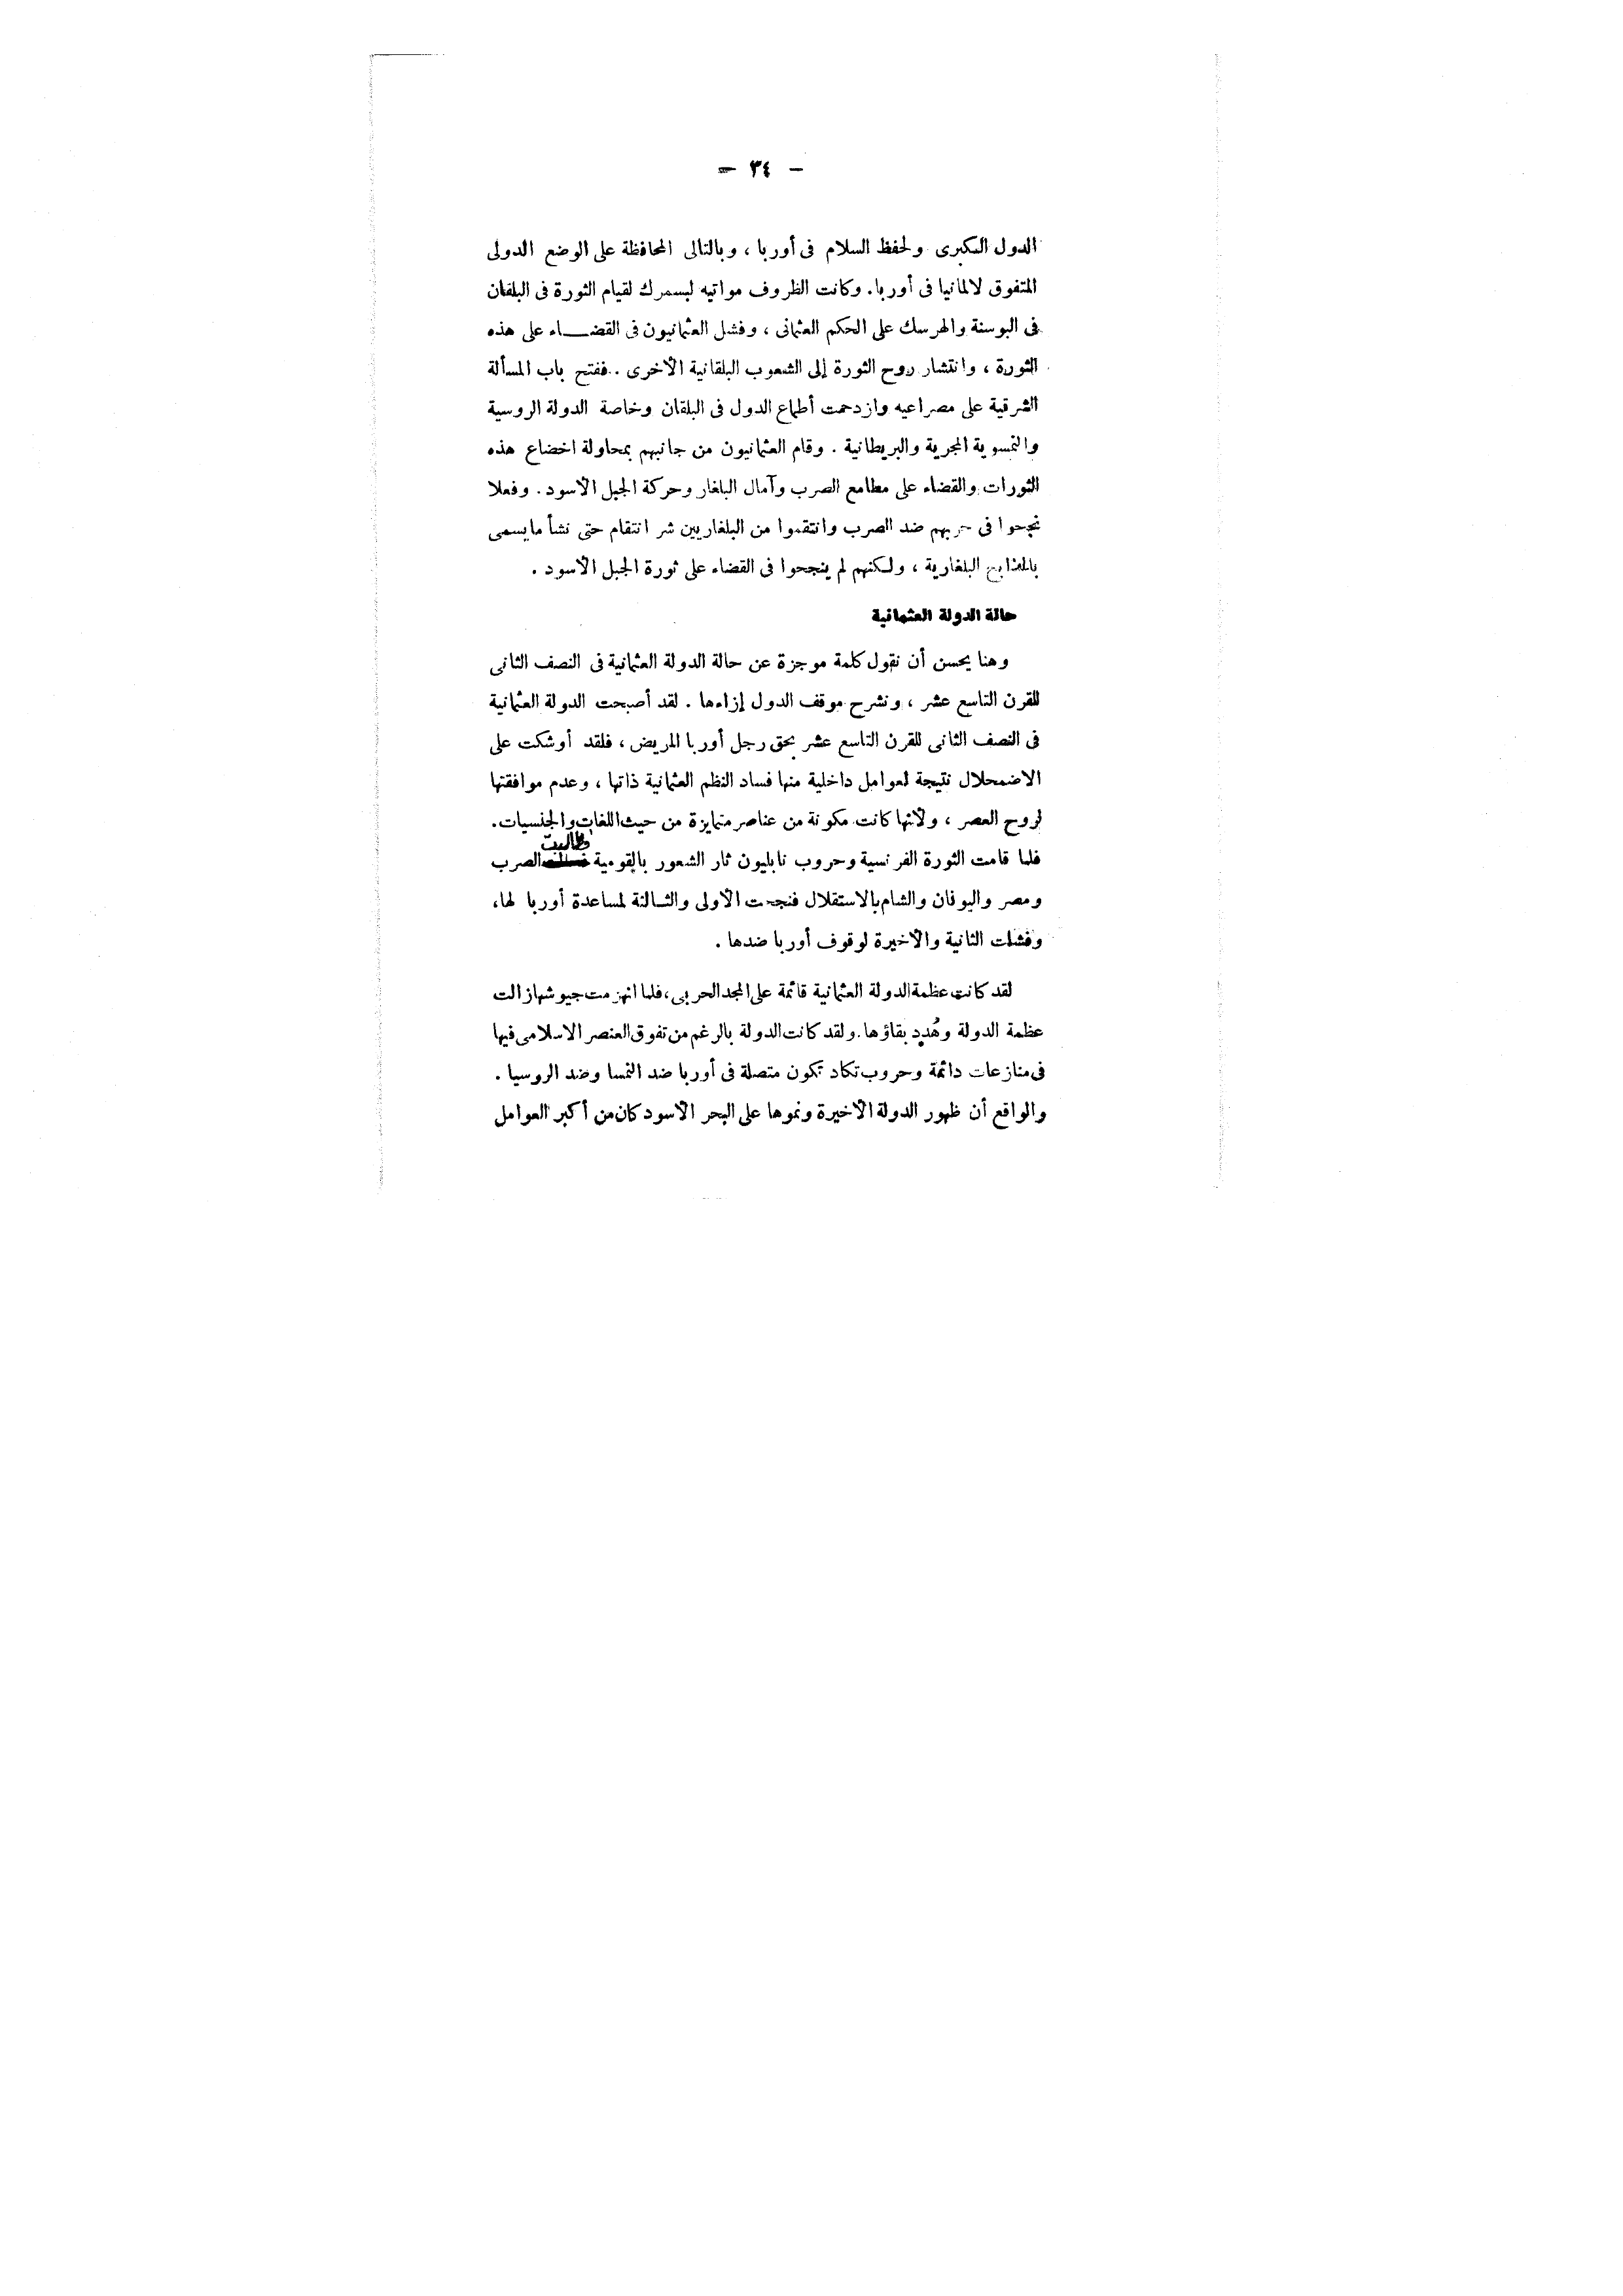 - ٣٤ -
الدول الكبرى ولحفظ السلام فى أوربا ، وبالتالى المحافظة على الوضع الدولى
المتفوق لالمانيا فى أوربا. وكانت الظروف مواتيه لبسمرك لقيام الثورة فى البلقان
فى البوسنة والهرسك على الحكم العثمانى ، وفشل العثمانيون فى القضاء على هذه
الثورة ، وانتشار روح الثورة إلى الشعوب البلقانية الأخرى .. ففتح باب المسألة
الشرقية على مصراعيه وازدحمت أطماع الدول فى البلقان وخاصة الدولة الروسية
والنمسوية المجرية والبريطانية . وقام العثمانيون من جانبهم بمحاولة اخضاع هذه
الثورات والقضاء على مطامع الصرب وآمال البلغار وحركة الجبل الأسود . وفعلا
نجحوا فى حربهم ضد الصرب وانتقموا من البلغاريين شر انتقام حتى نشأ مايسمى
بالمذابح البلغارية ، ولكنهم لم ينجحوا فى القضاء على ثورة الجبل الأسود .
حالة الدولة العثمانية
وهنا يحسن أن نقول كلمة موجزة عن حالة الدولة العثمانية فى النصف الثانى
للقرن التاسع عشر ، ونشرح موقف الدول إزاءها . لقد أصبحت الدولة العثمانية
فى النصف الثانى للقرن التاسع عشر بحق رجل أوربا المريض ، فلقد أوشكت على
الاضمحلال نتيجة لعوامل داخلية منها فساد النظم العثمانية ذاتها ، وعدم موافقتها
لروح العصر ، ولأنها كانت مكونة من عناصر متمايزة من حيث اللغات والجنسيات.
فلما قامت الثورة الفرنسية وحروب نابليون ثار الشعور بالقومية وطالبت الصرب
ومصر واليونان والشام بالاستقلال فنجحت الأولى والثالثة لمساعدة أوربا لها،
وفشلت الثانية والأخيرة لوقوف أوربا ضدها .
لقد كانت عظمة الدولة العثمانية قائمة على المجد الحربى، فلما انهزمت جيوشها زالت
عظمة الدولة وهُدد بقاؤها. ولقد كانت الدولة بالرغم من تفوق العنصر الاسلامى فيها
فى منازعات دائمة وحروب تكاد تكون متصلة فى أوربا ضد النمسا وضد الروسيا .
والواقع أن ظهور الدولة الأخيرة ونموها على البحر الأسود كان من أكبر العوامل